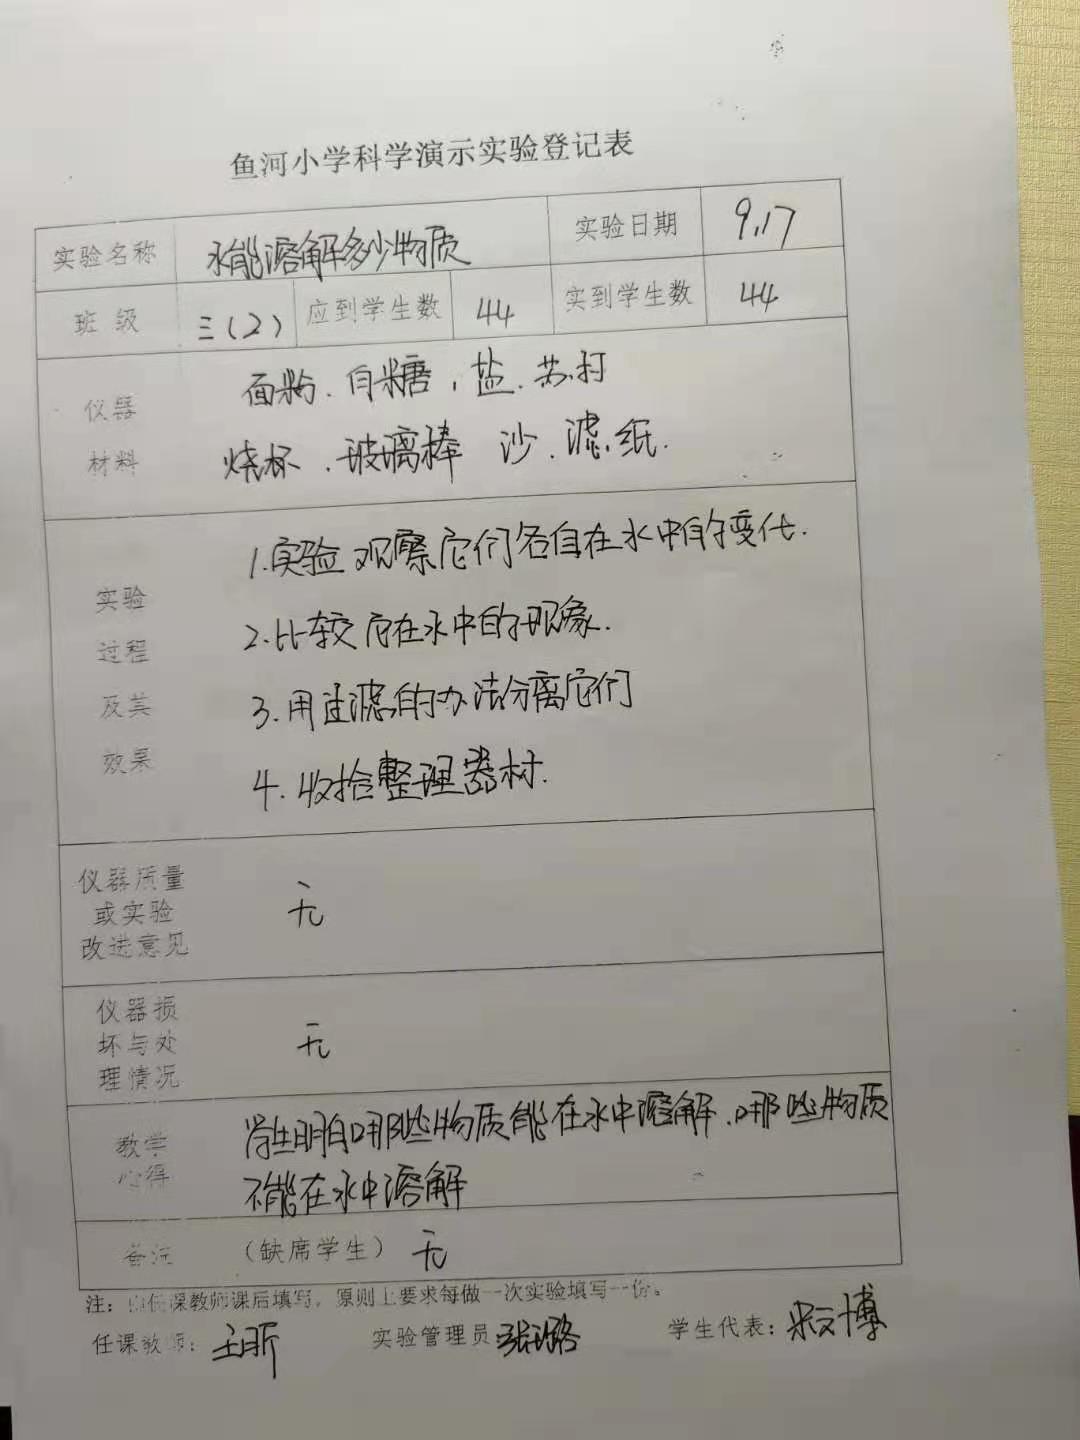 鱼河小学科学演示实验登记表
实验名称 水能溶解多少物质 实验日期 9.17
班 级 三(2) 应到学生数 44 实到学生数 44
仪器
材料
面粉.白糖,盐.苏打
烧杯.玻璃棒 沙.滤纸.
实验
过程
及其
效果
1.实验 观察它们各自在水中的变化.
2.比较它在水中的现象.
3.用过滤的办法分离它们
4.收拾整理器材.
仪器质量
或实验
改进意见
无
仪器损
坏与处
理情况
无
教学
心得
学生明白哪些物质能在水中溶解.哪些物质
不能在水中溶解
备注 (缺席学生) 无
注:由任课教师课后填写,原则上要求每做一次实验填写一份。
任课教师: 王昕 实验管理员: 学生代表: 宋文博